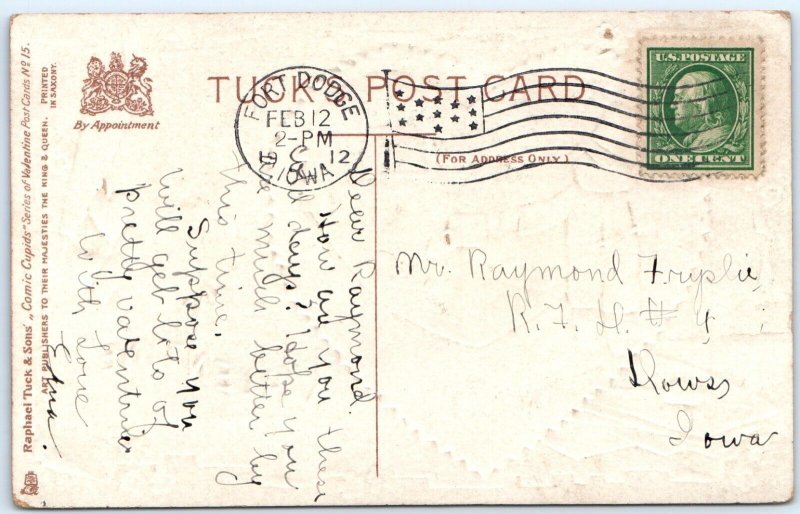 Raphael Tuck & Sons' „Comic Cupids" Series of Valentine Post Cards Nº 15.
ART PUBLISHERS TO THEIR MAJESTIES THE KING & QUEEN.
PRINTED
IN SAXONY.
By Appointment
TUCK'S POST CARD
(FOR ADDRESS ONLY)
FORT DODGE
FEB 12
2-PM
12
IOWA
U.S. POSTAGE
ONE CENT
Dear Raymond.
How are you these
days? Hope you
much better by
this time.
Suppose you
will get lots of
pretty valentines
With Love
Edna.
Mr. Raymond Fryslie
R.F.D. #4
Iowa